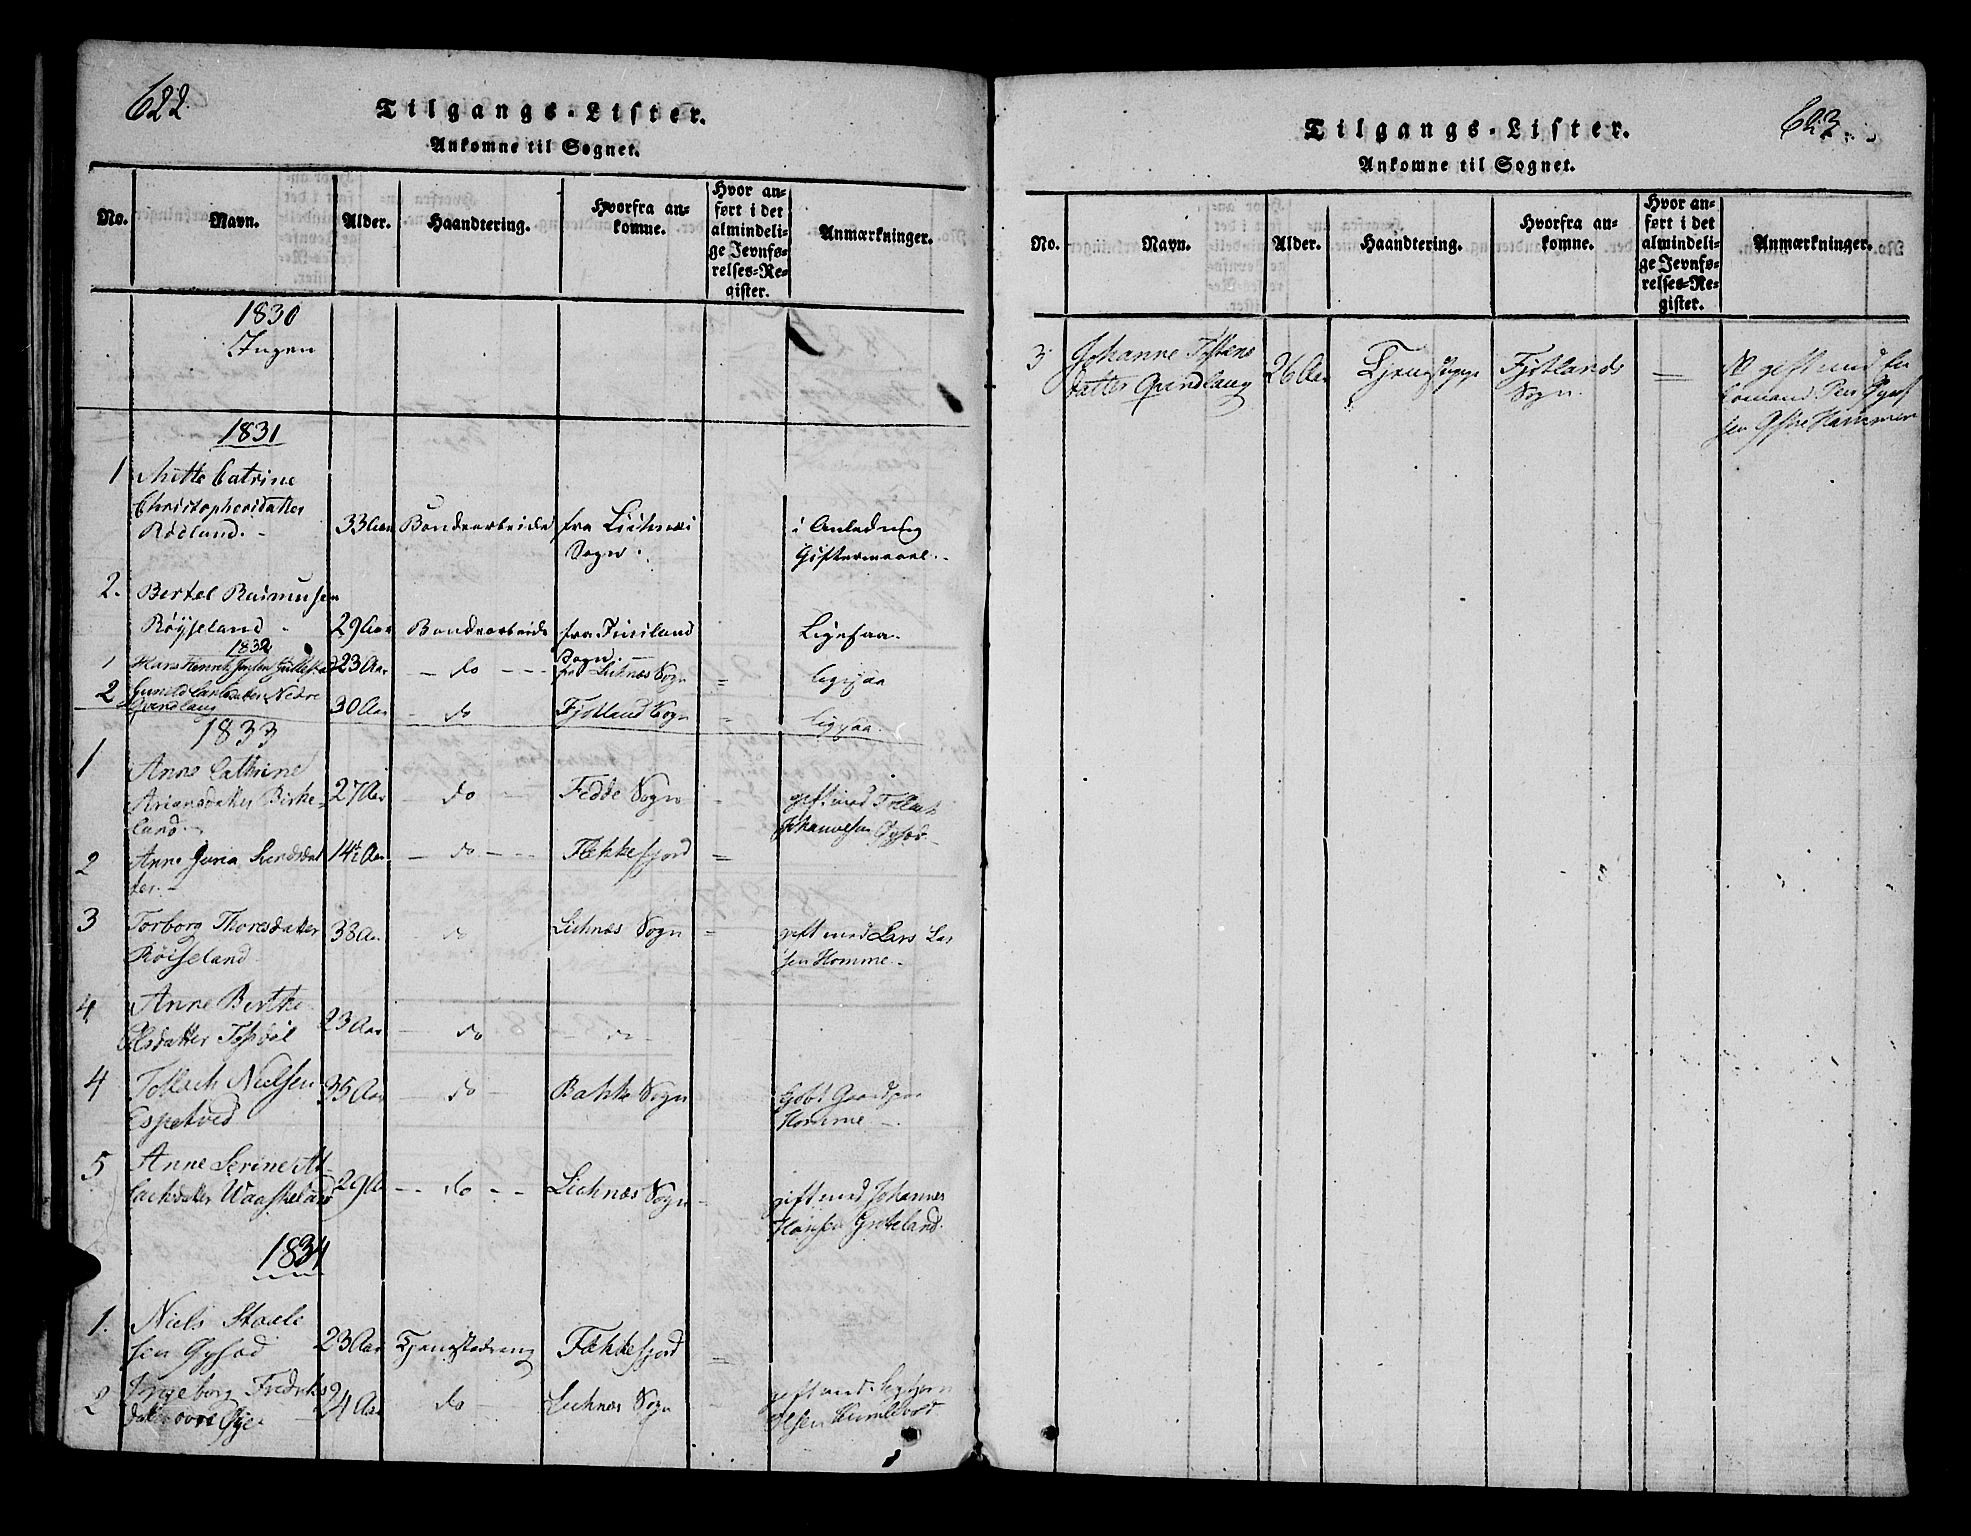 622.
Tilgangs-Lister.
Ankomne til Sognet.
No. Navn. Alder. Haandtering. Hvorfra ankomne. Hvor anført i det almindelige Jevnførelses-Register. Anmærkninger.
1830
Ingen
1831
1 Mette Catrine
Christophersdatter
Röeland. 33 Aar Bondearbeide fra Liehnæs i Anledning
Sogn. Giftermaal.
2. Bertel Rasmusen
Röyseland 29 Aar Bondearbeide fra Finsland Ligesaa.
Sogn.
1832
1 Hans Henrik 23 Aar do fra Liehnæs Sogn = ligesaa
2 Gunild Nedre
Qvindlaug 30 Aar do Fjotland Sogn = ligesaa.
1833
1 Anne Cathrine
Ariansdatter Birke-
land. 27 Aar do Fedde Sogn gift med Tollak
Johannesen Gysod
2 Anne Guria Svendsdat
ter. 14½ Aar do Flekkefjord =
3 Torborg Thoresdatter
Röiseland 38 Aar do Liehnæs Sogn = gift med Lars Lar
sen Homme.
4. Anne Birthe
Olsdatter Topdöl 23 Aar do do
4 Tollach Nielsen
Espetved 35 Aar do Bakke Sogn kjöbt Gaardpar
Homme
5 Anne Serine At
lachdatter Waaskeland 29 Aar do Liehnæs Sogn gift med Johannes
Hansen Greteland.
1834
1. Niels Staale
sen Gysod 23 Aar Tjenestedreng Flekkefjord =
2 Ingeborg Fredriks
datter övre Öye 24 Aar do Liehnæs Sogn gift med
Olsen
623.
Tilgangs-Lister.
Ankomne til Sognet.
No. Navn. Alder. Haandtering. Hvorfra ankomne. Hvor anført i det almindelige Jevnførelses-Register. Anmærkninger.
3 Johanne Tostens
datter Qvindlaug 26 Aar Tjenestepige Fjotlands
Sogn. = gift med